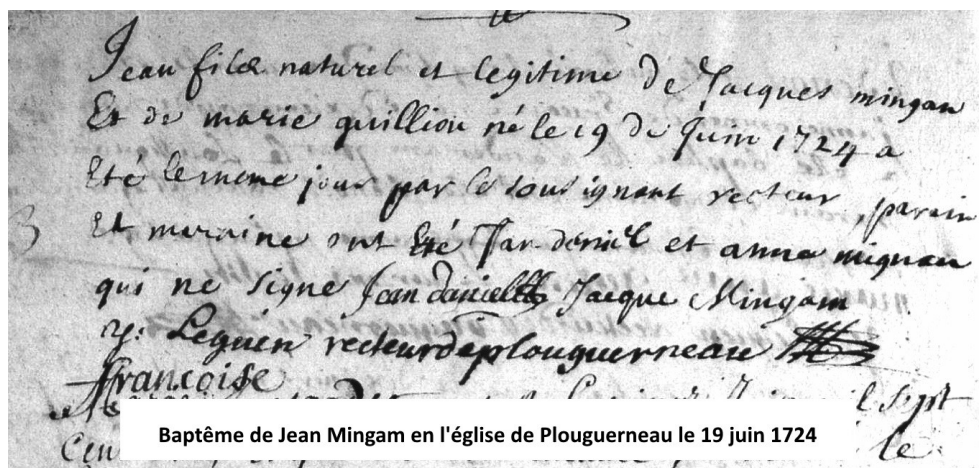 Jean fils naturel et legitime de Jacques mingan
Et de marie quilliou né le 19 de Juin 1724 a
Eté le meme jour par le sousignant recteur, parain
Et maraine ont Eté Jan deniel et anna mignan
qui ne signe Jean daniel Jacque Mingam
Leguen recteur de plouguerneau
francoise
sept
Cent le
Baptême de Jean Mingam en l'église de Plouguerneau le 19 juin 1724